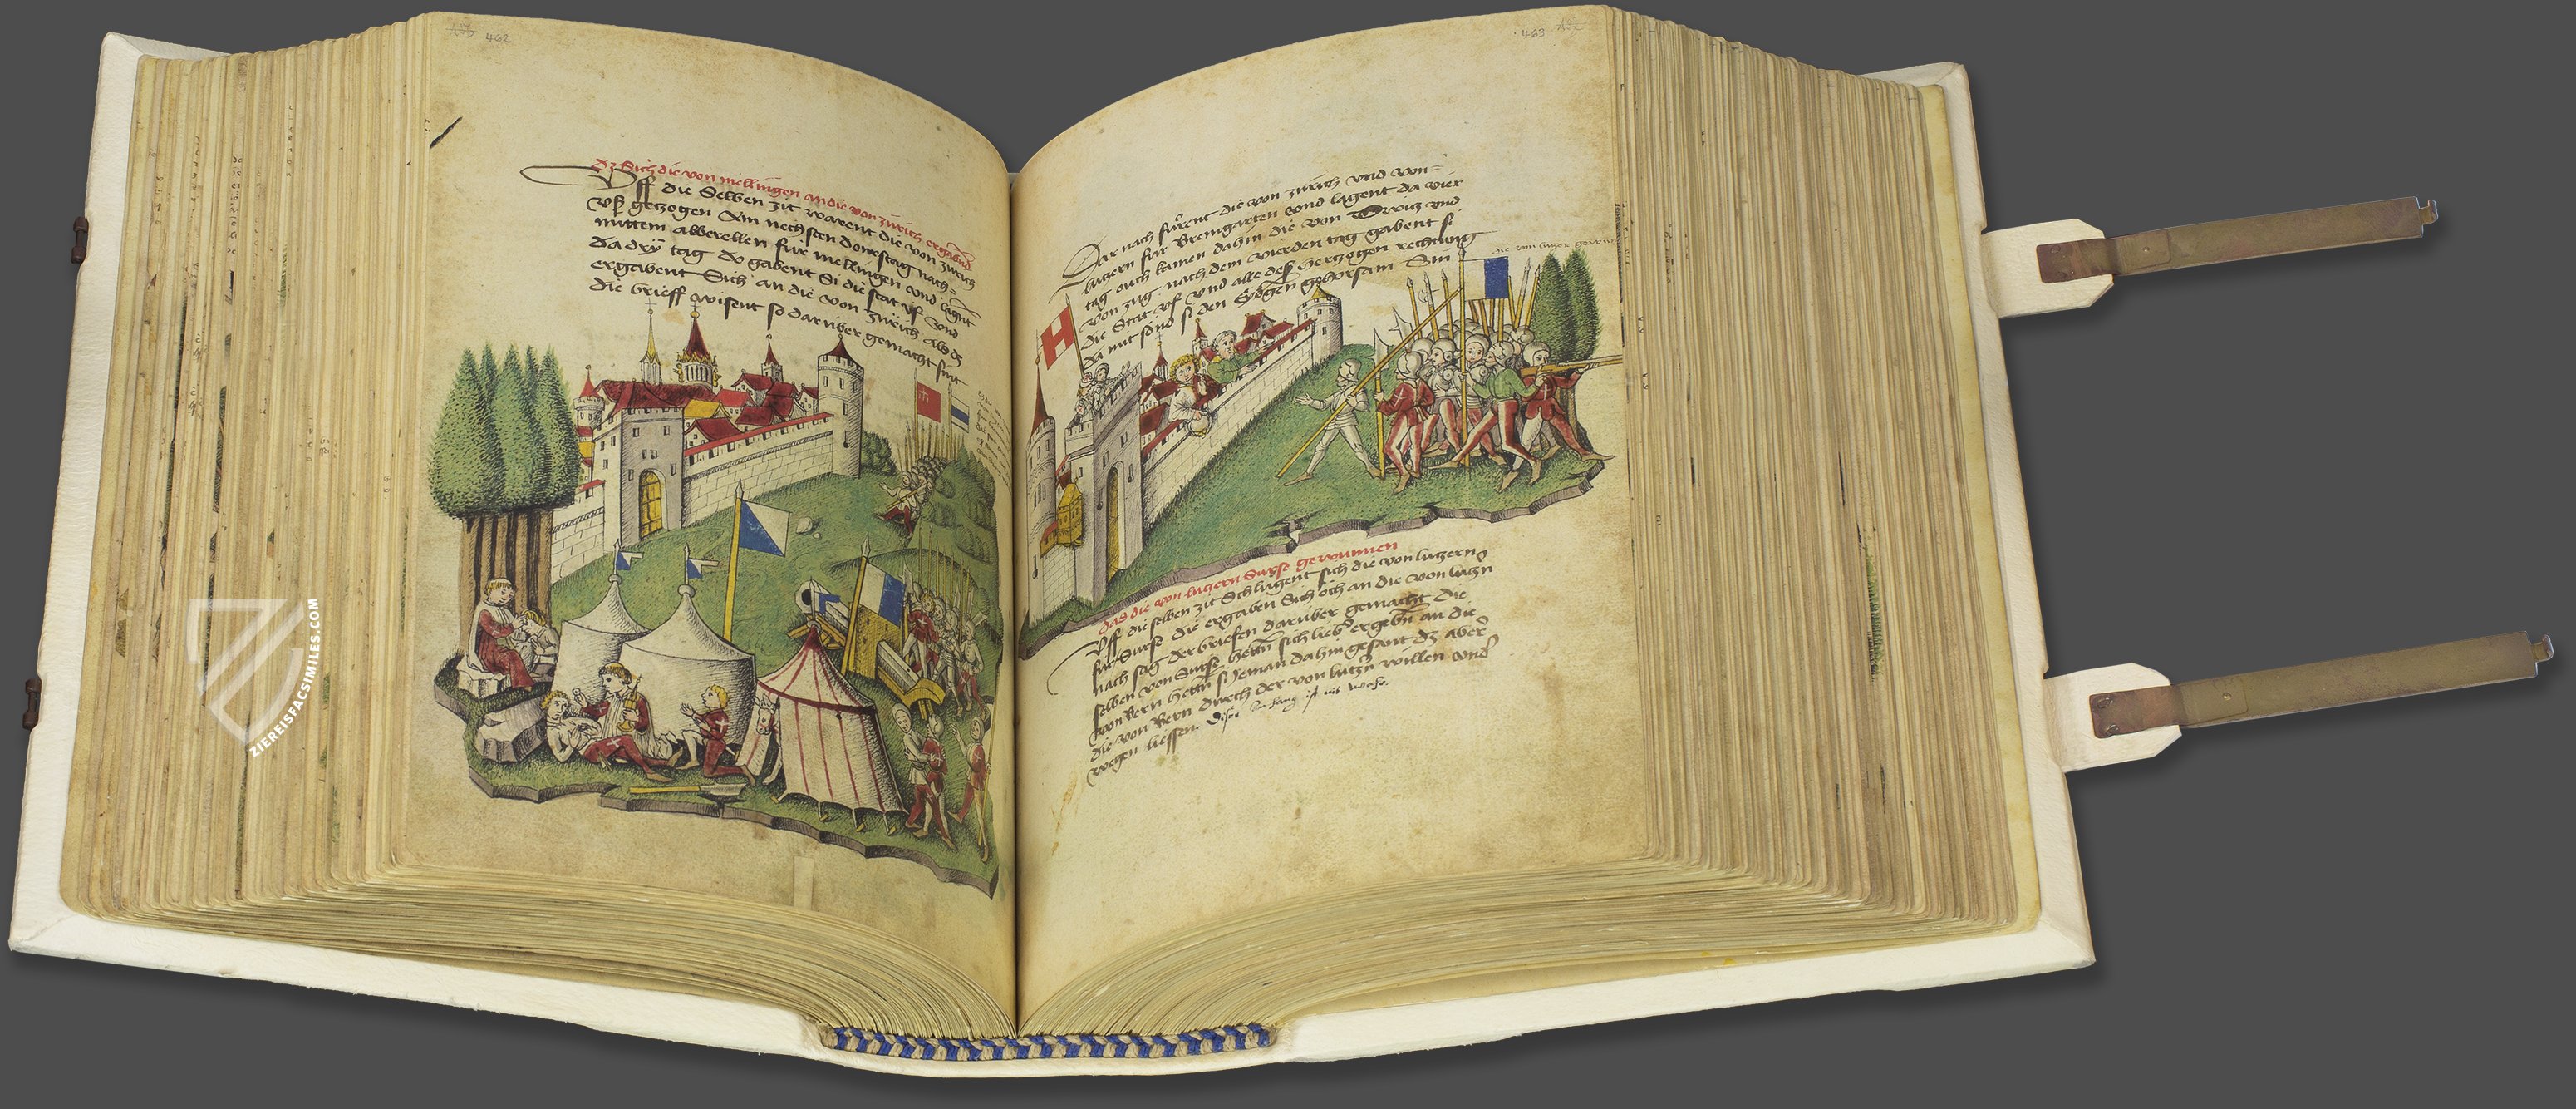 462
dz Sich die von mellingen an die von zürich ergabend
Uff die Selben zit warent die von zürich
vß gezogen Am nechsten donrstag nach
mittem abberellen für mellingen und lagent
da dry tag do gabent Si die stat uf und
ergabent Sich an die von zürich als dz
die brieff wisent so darüber gemacht sint
463
Dar nach fürent die von zürich und von
lutzern für Bremgarten und lagent da vier
tag ouch kamen dahin die von Switz und
von zug nach dem vierden tag gabent si
die Statt uf und alle deß hertzogen rechtung
da mit sond si den Eydgen gehorsam Sin
das die von lutzern Surse gewunnen
Uff die selben zit Schlugent sich die von lutzern
für Surse die ergaben Sich och an die von lutzn
nach sag der briefen darüber gemacht die
selben von Surse hettn sich lieber ergebn an die
von Bern hettn si yeman dahin gesant dz aber
die von Bern durch der von lutzn willen under
wegen liessen
ZIEREISFACSIMILES.COM